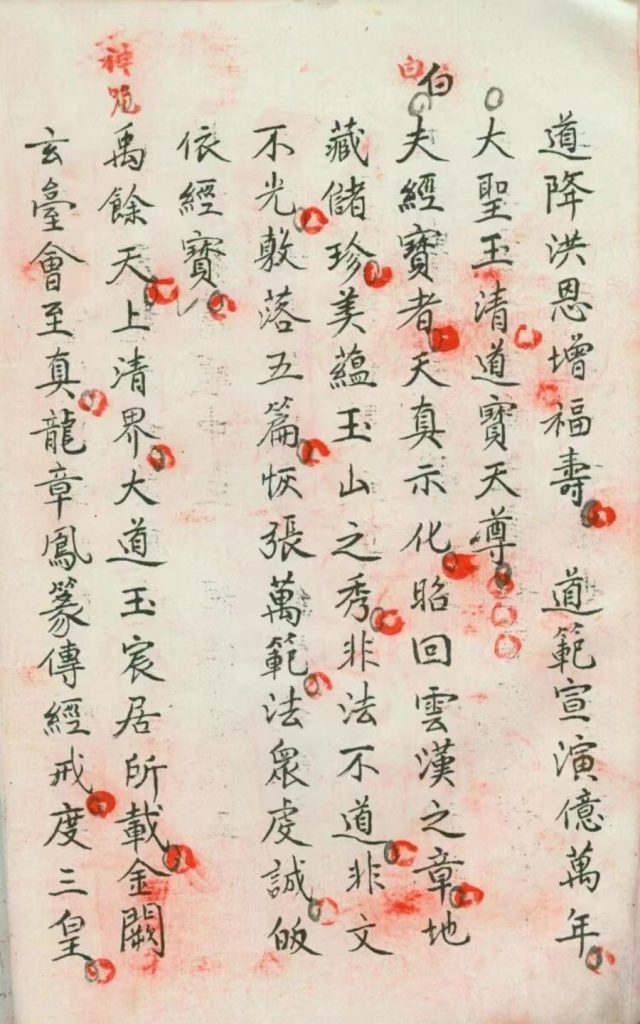 道降洪恩增福壽 道範宣演億萬年
大聖玉清道寶天尊
白 白
夫經寶者天真示化昭回雲漢之章地
藏儲珍美蘊玉山之秀非法不道非文
不光敷落五篇恢張萬範法眾虔誠皈
依經寶
神咒
禹餘天上清界大道玉宸居所載金闕
玄臺會至真龍章鳳篆傳經戒度三皇